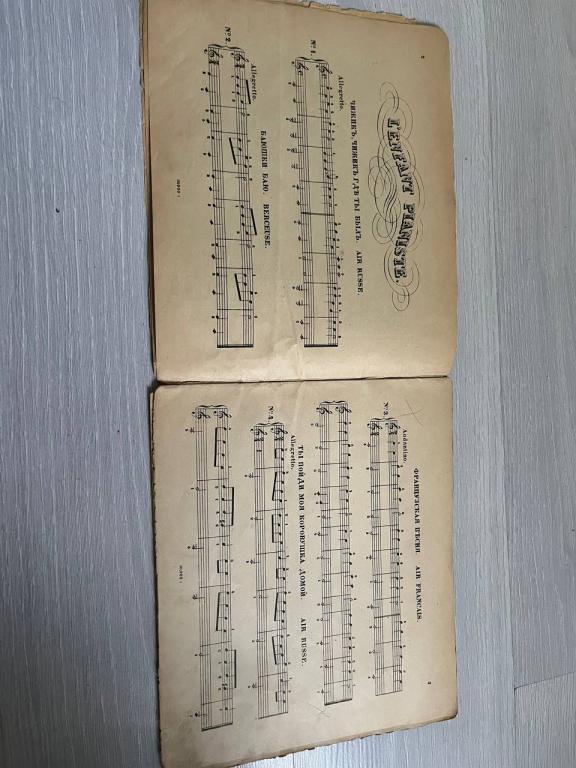 2
L'ENFANT PIANISTE.
ЧИЖИКЪ, ЧИЖИКЪ ГДѢ ТЫ БЫЛЪ. AIR RUSSE.
Allegretto.
№ 1.
БАЮШКИ БАЮ. BERCEUSE.
Allegretto.
№ 2.
3
ФРАНЦУЗСКАЯ ПѢСНЯ. AIR FRANCAIS.
Andantino.
№ 3.
ТЫ ПОЙДИ МОЯ КОРОВУШКА ДОМОЙ. AIR RUSSE.
Allegretto.
№ 4.